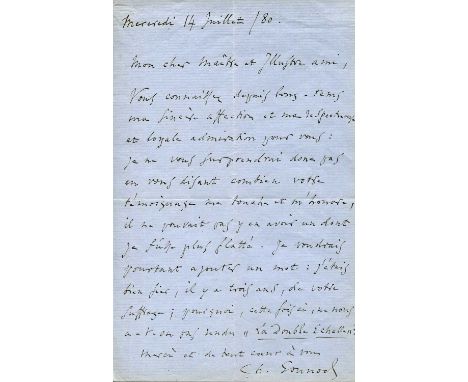 Mercredi 14 Juillet /80.
Mon cher Maître et Illustre ami,
Vous connaissez depuis long-tems
ma sincère affection et ma respectueuse
et loyale admiration pour vous :
je ne vous surprendrai donc pas
en vous disant combien votre
témoignage me touche et m'honore,
il ne pouvait pas y en avoir un dont
je fusse plus flatté. Je voudrais
pourtant ajouter un mot : j'étais
bien fier, il y a trois ans, de votre
suffrage ; pourquoi, cette fois-ci, ne nous
a-t-on pas rendu « La Double Echelle » ?
merci et de tout cœur à vous
Ch. Gounod